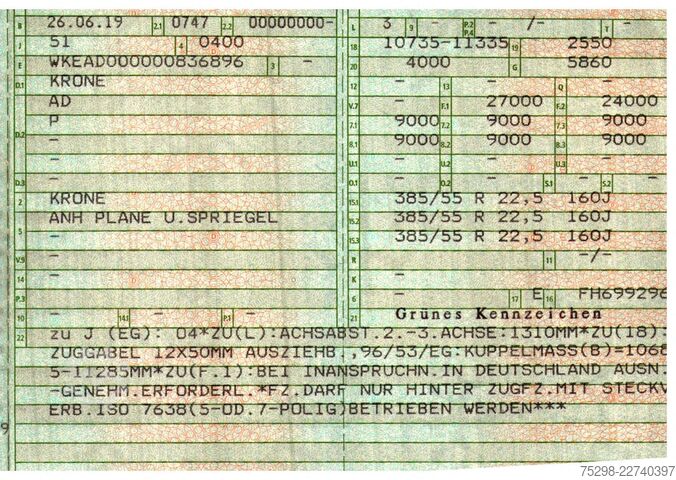 B 26.06.19 2.1 0747 2.2 00000000- L 3 9 - P.2 P.4 - /- T -
J 51 4 0400 18 10735-11335 19 2550
E WKEAD000000836896 3 - 20 4000 G 5860
D.1 KRONE 12 - 13 - Q -
AD V.7 - F.1 27000 F.2 24000
D.2 P 7.1 9000 7.2 9000 7.3 9000
- 8.1 9000 8.2 9000 8.3 9000
- U.1 - U.2 - U.3 -
D.3 - O.1 - O.2 - S.1 - S.2 -
2 KRONE 15.1 385/55 R 22,5 160J
5 ANH PLANE U.SPRIEGEL 15.2 385/55 R 22,5 160J
- 15.3 385/55 R 22,5 160J
V.9 - R - 11 -/-
14 - K -
P.3 - 6 - 17 E 16 FH699296
10 - 14.1 - P.1 - 21 Grünes Kennzeichen
22 zu J (EG): 04*ZU(L):ACHSABST.2.-3.ACHSE:1310MM*ZU(18):
ZUGGABEL 12X50MM AUSZIEHB.,96/53/EG:KUPPELMASS(B)=1068
5-11285MM*ZU(F.1):BEI INANSPRUCHN.IN DEUTSCHLAND AUSN.
-GENEHM.ERFORDERL.*FZ.DARF NUR HINTER ZUGFZ.MIT STECKV
ERB.ISO 7638(5-OD.7-POLIG)BETRIEBEN WERDEN***
9
75298-22740397